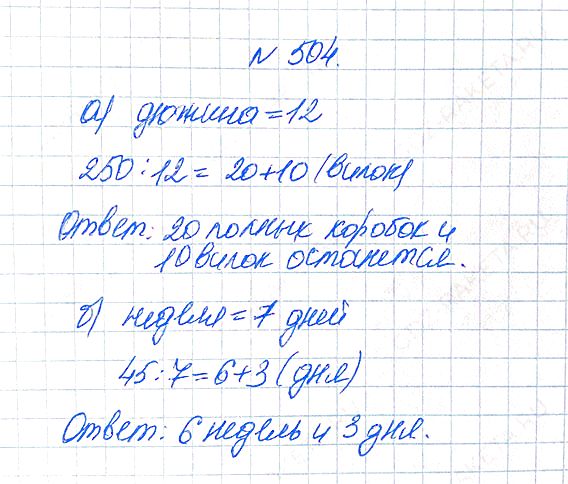 N 504.
а) дюжина = 12
250 : 12 = 20 + 10 (вилок)
Ответ: 20 полных коробок и
10 вилок останется.
б) неделя = 7 дней
45 : 7 = 6 + 3 (дня)
Ответ: 6 недель и 3 дня.